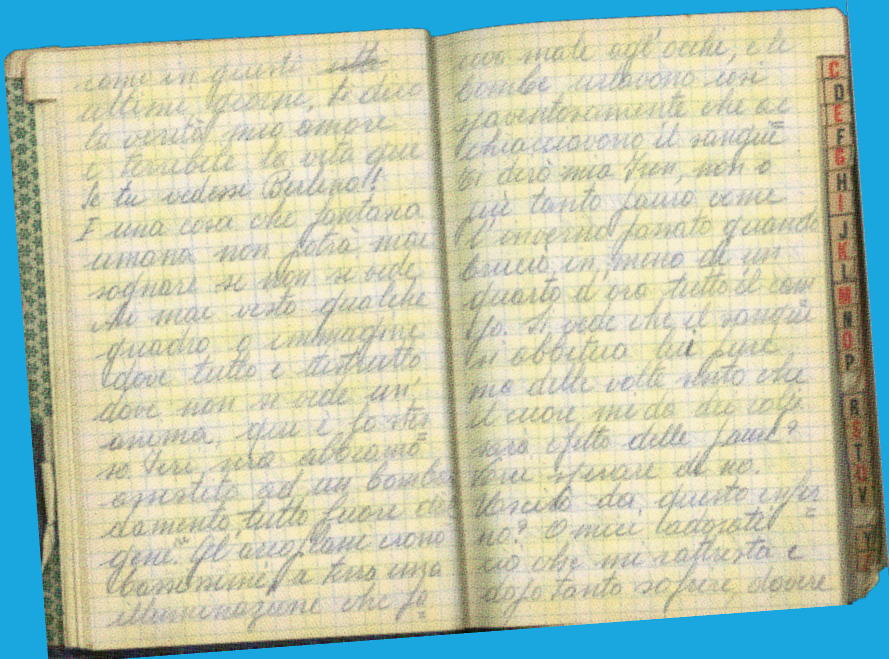 come in questi
ultimi giorni, ti dico
la verità mio amore
è terribile la vita qui
Se tu vedessi Berlino!!
È una cosa che fantasia
umana non potrà mai
sognare se non si vede
Ai mai visto qualche
quadro o immagine
dove tutto è distrutto
dove non si vede un'
anima, qui è lo stes=
so. Ieri sera abbiamo
assistito ad un bombar
damento, tutto fuori
Gl'aeroplani erano
bassissimi, a terra una
illuminazione che fa=
ceva male agl'occhi, e le
bombe urlavono così
spaventosamente che ac
chiacciavono il sangue
ti dirò mia Iren, non o
più tanto paura come
l'inverno passato quando
bruciò in meno di un
quarto d'ora tutto il cam
po. Si vede che il sangue
si abbitua lui pure
ma delle volte sento che
il cuore mi da dei colpi
sarà efetto delle paure?
Vorei sperare di no.
Uscirò da questo infer=
no? O miei adorati
ciò che mi rattrista è
dopo tanto sofrire, dovere
C
D
E
F
G
H
I
J
K
L
M
N
O
P
R
S
T
U
V
Y